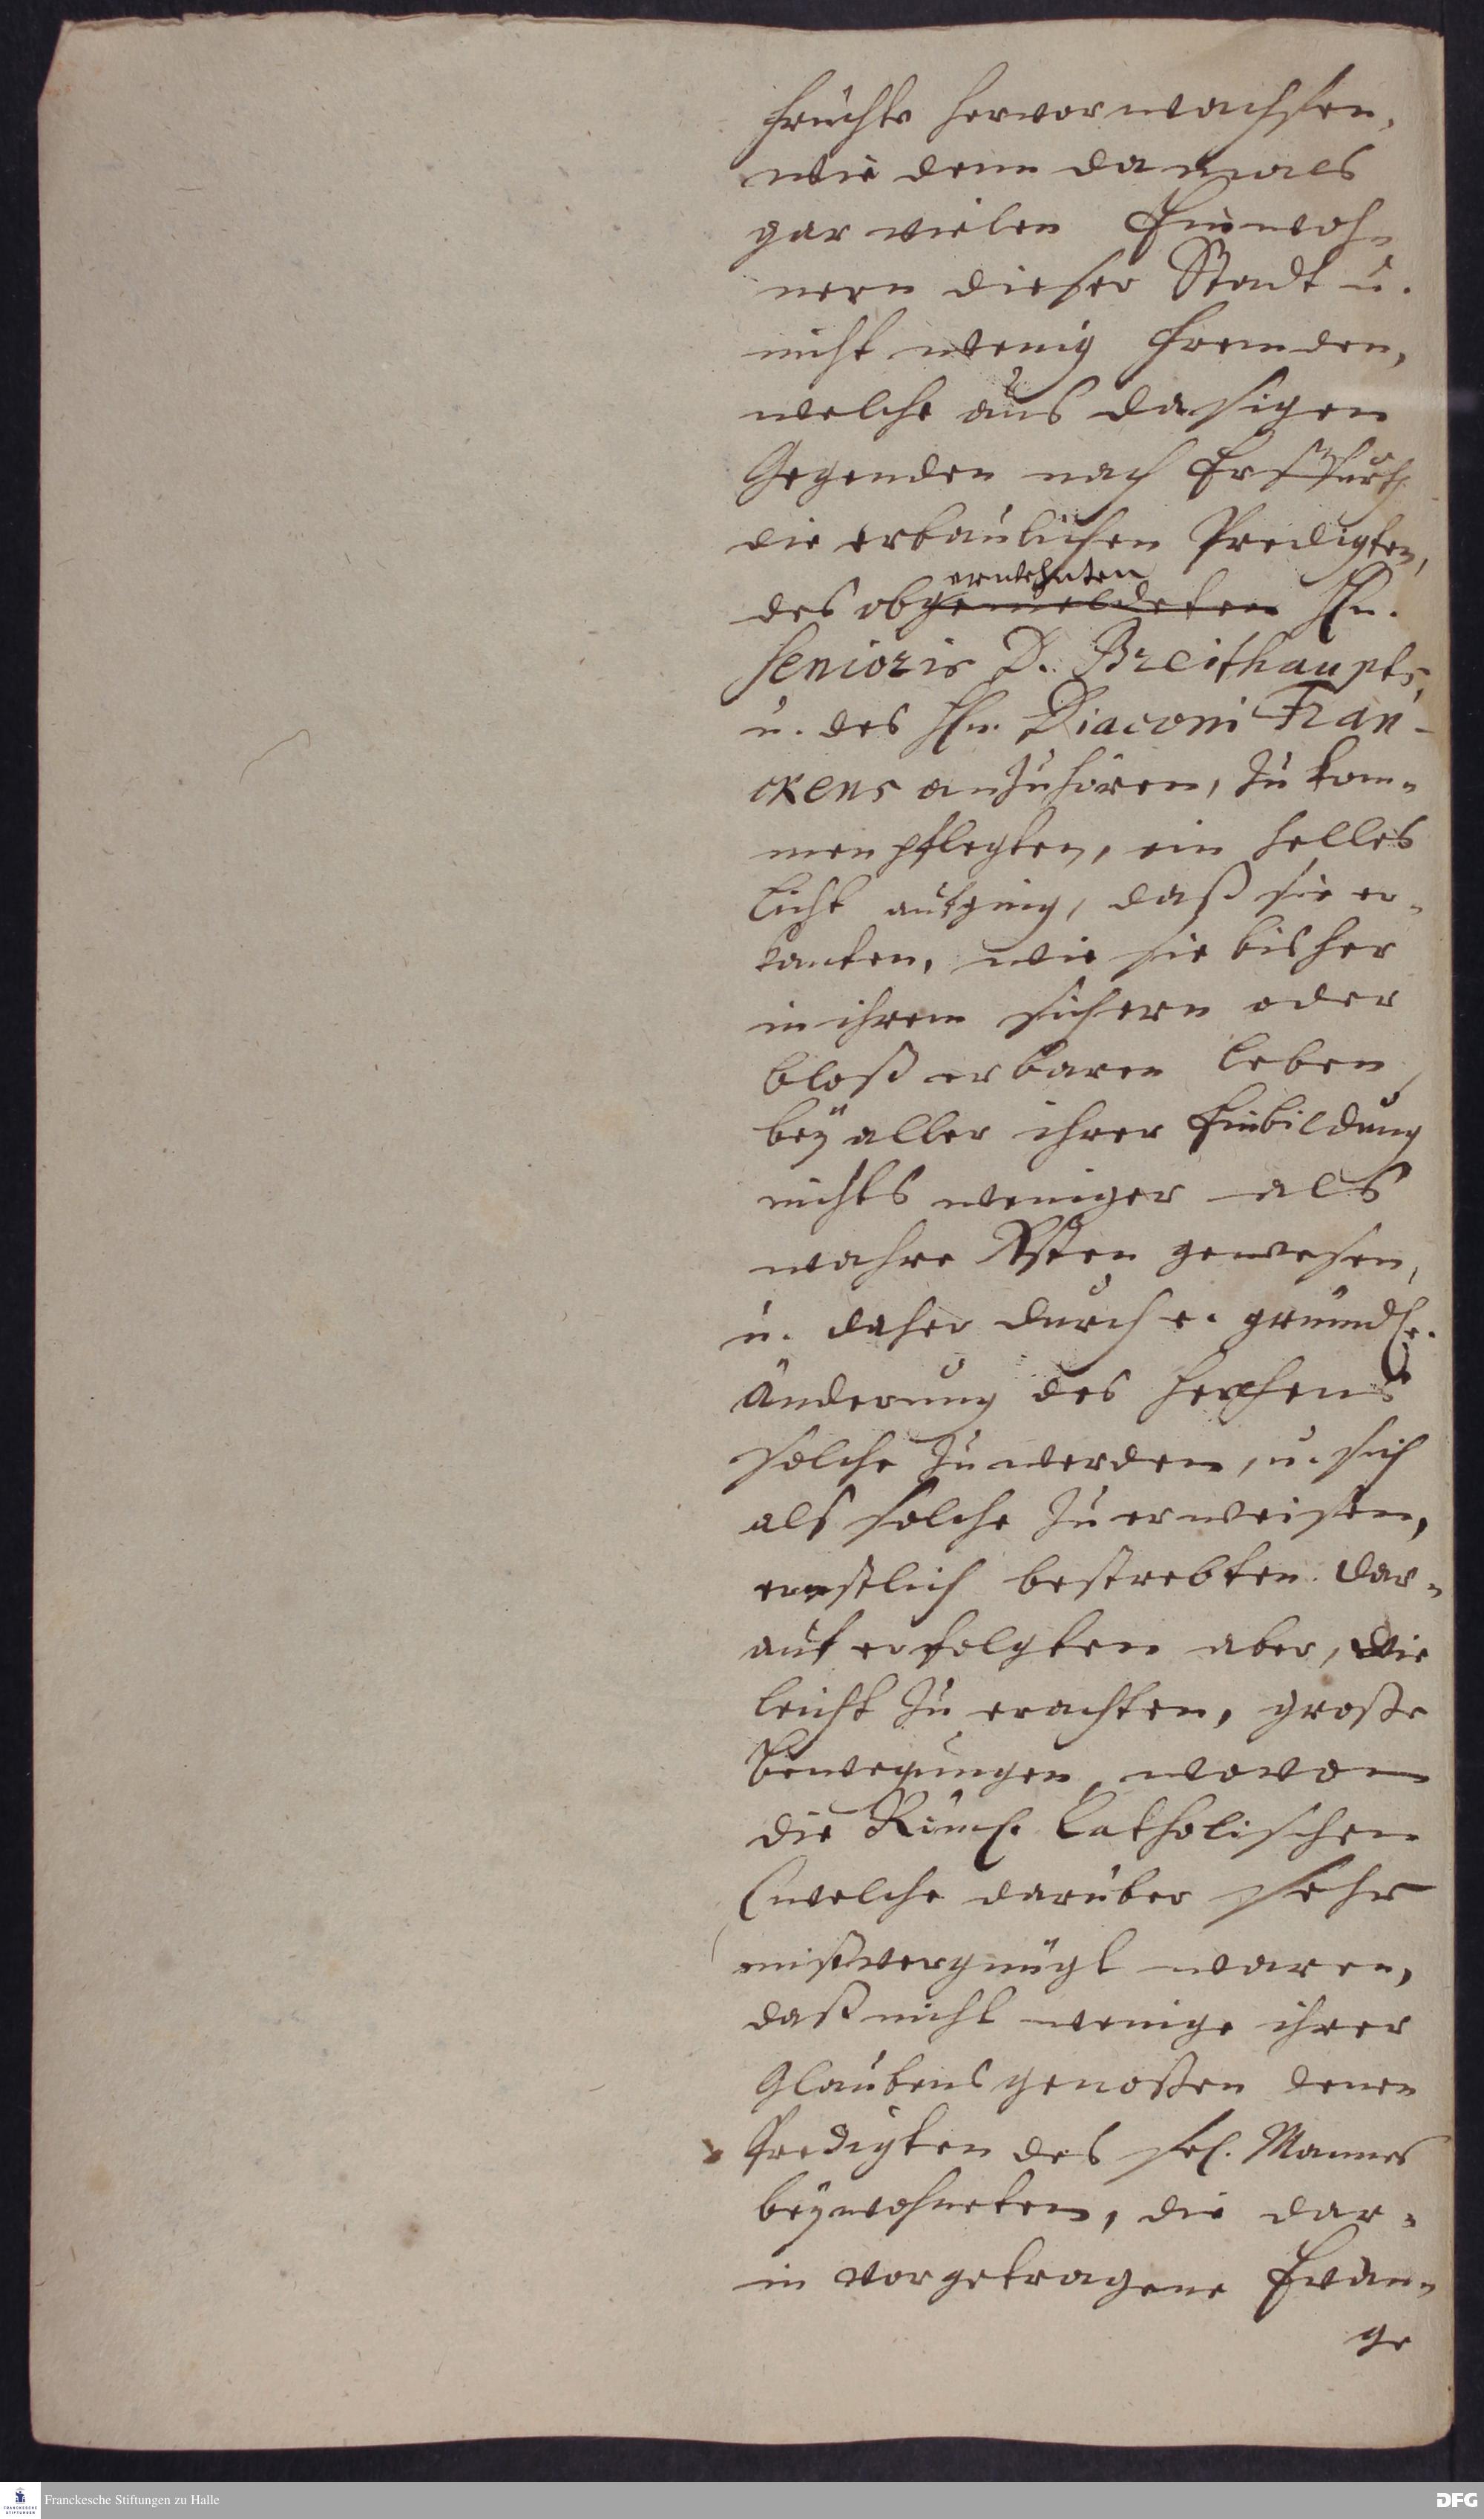 früchte hervor wachsen,
wie denn damals
gar vielen Einwoh-
nern dieser Stadt u.
nicht wenig fremden,
welche aus dasigen
Gegenden nach Erffurth
die erbaulichen Predigten,
erwehnten
des obgemeldeten Hn.
Senioris D. Breithaupts,
u. des Hn. Diaconi Fran-
ckens anzuhören, zu kom-
men pflegten, ein helles
Licht aufging, daß sie er-
kanten, wie sie bisher
in ihrem sichern oder
bloß erbaren Leben
bey aller ihrer Einbildung
nichts weniger als
wahre Xsten gewesen,
u. daher durch e. gründl.
Änderung des Herzens
solche zu werden, u. sich
als solche zu erweisen,
ernstlich bestrebten. Dar-
auf erfolgten aber, wie
leicht zu erachten, große
Bewegungen, wovon
die Römis. Catholischen
(welche darüber sehr
mißvergnügt waren,
daß nicht wenige ihrer
Glaubensgenoßen denen
Predigten des sel. Mannes
beywohneten, die dar-
in vorgetragene Evan-
ge
Franckesche Stiftungen zu Halle
DFG